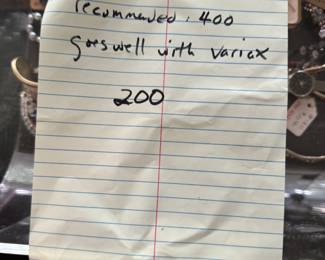 recommended: 400
Goes well with variax
200